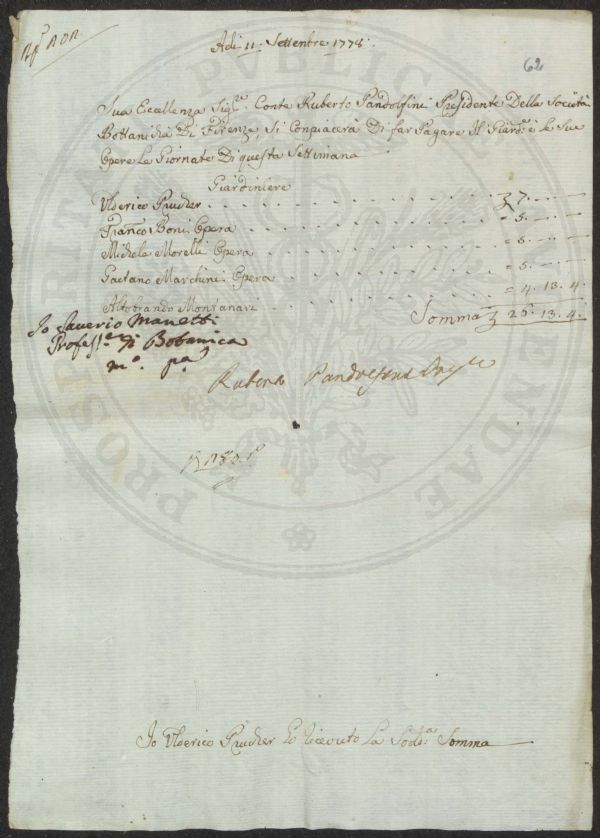 Adi 11: Settembre 1778:
62
Sua Eccellenza Sigr. Conte Ruberto Pandolfini Presidente Della Società
Bottanicha Di Firenze, Si Conpiacerà Di far Pagare Il Giard:e e Le Sue
Opere Le Giornate Di questa Settimana
Giardiniere
Ulderico Prucher . . . . . . . . . . . 7. — —
Franco Boni Opera . . . . . . . . . . = 5. — —
Michele Morelli Opera . . . . . . . . . . = 5. — —
Gaetano Marchini Opera . . . . . . . . . . = 5. — —
Altobrando Montanari . . . . . . . . . . = 4. 13. 4.
Somma 26. 13. 4.
Io Saverio Manetti
Profess:e di Botanica
mo. pa
Ruberto Pandolfini
Io Ulderico Prucher Ho Ricevuto La Sodda: Somma
PUBLICAE
PROSPERITATI